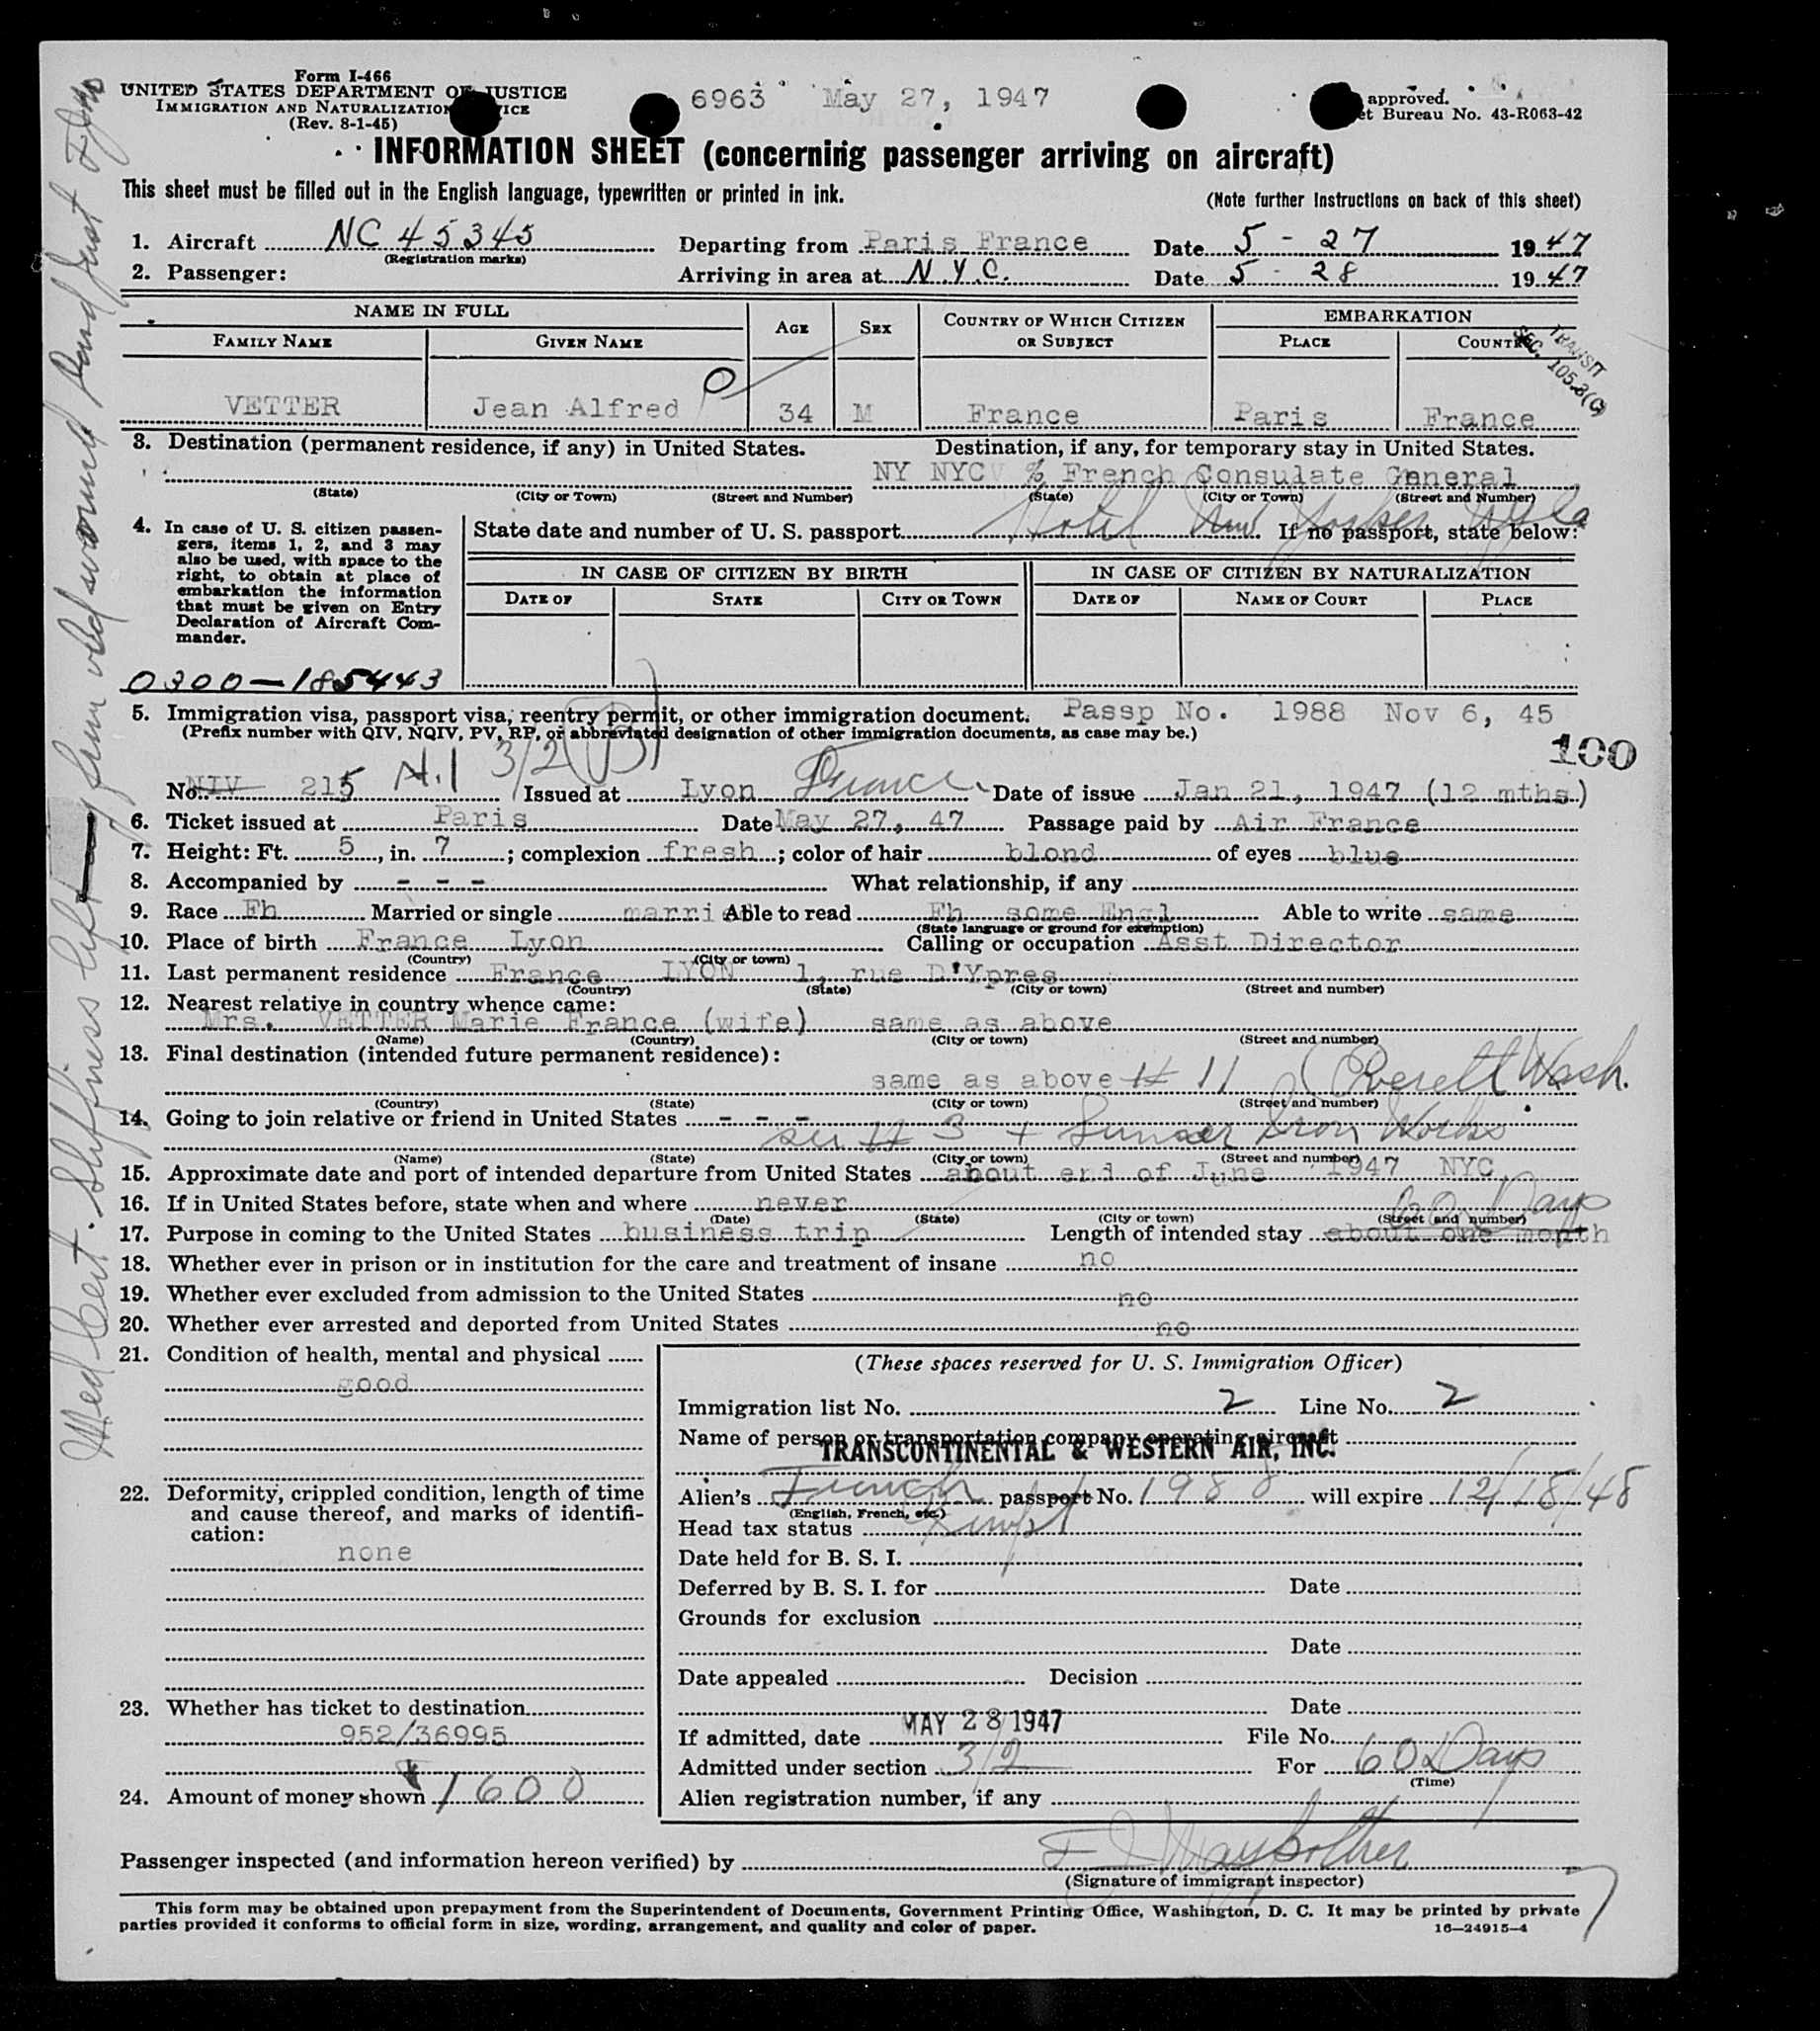 Form I-466
UNITED STATES DEPARTMENT OF JUSTICE
IMMIGRATION AND NATURALIZATION ICE
(Rev. 8-1-45)
6963 May 27, 1947
approved.
et Bureau No. 43-R063-42
INFORMATION SHEET (concerning passenger arriving on aircraft)
This sheet must be filled out in the English language, typewritten or printed in ink.
(Note further instructions on back of this sheet)
1. Aircraft NC 45345 Departing from Paris France Date 5-27 1947
(Registration marks)
2. Passenger: Arriving in area at N.Y.C. Date 5-28 1947
NAME IN FULL AGE SEX COUNTRY OF WHICH CITIZEN OR SUBJECT EMBARKATION
FAMILY NAME GIVEN NAME PLACE COUNTRY
TRANSIT
SEC. 105.3(C)
VETTER Jean Alfred 34 M France Paris France
3. Destination (permanent residence, if any) in United States. Destination, if any, for temporary stay in United States.
NY NYC % French Consulate General
(State) (City or Town) (Street and Number) (State) (City or Town) (Street and Number)
Hotel New Yorker
4. In case of U. S. citizen passengers, items 1, 2, and 3 may also be used, with space to the right, to obtain at place of embarkation the information that must be given on Entry Declaration of Aircraft Commander.
State date and number of U. S. passport If no passport, state below:
IN CASE OF CITIZEN BY BIRTH IN CASE OF CITIZEN BY NATURALIZATION
DATE OF STATE CITY OR TOWN DATE OF NAME OF COURT PLACE
0300-185443
5. Immigration visa, passport visa, reentry permit, or other immigration document. Passp No. 1988 Nov 6, 45
(Prefix number with QIV, NQIV, PV, RP, or abbreviated designation of other immigration documents, as case may be.)
100
3/2
No. NIV 215 Issued at Lyon France Date of issue Jan 21, 1947 (12 mths)
6. Ticket issued at Paris Date May 27, 47 Passage paid by Air France
7. Height: Ft. 5, in. 7; complexion fresh; color of hair blond of eyes blue
8. Accompanied by - - - What relationship, if any
9. Race Fh Married or single married Able to read Fh some Engl Able to write same
(State language or ground for exemption)
10. Place of birth France Lyon Calling or occupation Asst Director
(Country) (City or town)
11. Last permanent residence France LYON 1, rue D'Ypres
(Country) (State) (City or town) (Street and number)
12. Nearest relative in country whence came:
Mrs. VETTER Marie France (wife) same as above
(Name) (Country) (City or town) (Street and number)
13. Final destination (intended future permanent residence):
same as above # 11 Everett Wash.
(Country) (State) (City or town) (Street and number)
14. Going to join relative or friend in United States - - -
# 3 + Sumner Iron Works
(Name) (State) (City or town) (Street and number)
15. Approximate date and port of intended departure from United States about end of June 1947 NYC
16. If in United States before, state when and where never
(Date) (State) (City or town) (Street and number)
60 Days
17. Purpose in coming to the United States business trip Length of intended stay about one month
18. Whether ever in prison or in institution for the care and treatment of insane no
19. Whether ever excluded from admission to the United States no
20. Whether ever arrested and deported from United States no
21. Condition of health, mental and physical
good
22. Deformity, crippled condition, length of time and cause thereof, and marks of identification:
none
23. Whether has ticket to destination
952/36995
24. Amount of money shown $1600
(These spaces reserved for U. S. Immigration Officer)
Immigration list No. 2 Line No. 2
Name of person or transportation company operating aircraft
TRANSCONTINENTAL & WESTERN AIR, INC.
Alien's French passport No. 1988 will expire 12/18/48
(English, French, etc.)
Head tax status
Date held for B. S. I.
Deferred by B. S. I. for Date
Grounds for exclusion
Date
Date appealed Decision
Date
If admitted, date MAY 28 1947 File No.
Admitted under section 3/2 For 60 Days
(Time)
Alien registration number, if any
Passenger inspected (and information hereon verified) by
(Signature of immigrant inspector)
This form may be obtained upon prepayment from the Superintendent of Documents, Government Printing Office, Washington, D. C. It may be printed by private
parties provided it conforms to official form in size, wording, arrangement, and quality and color of paper.
16—24915-4
Med Cert. Stiffness left